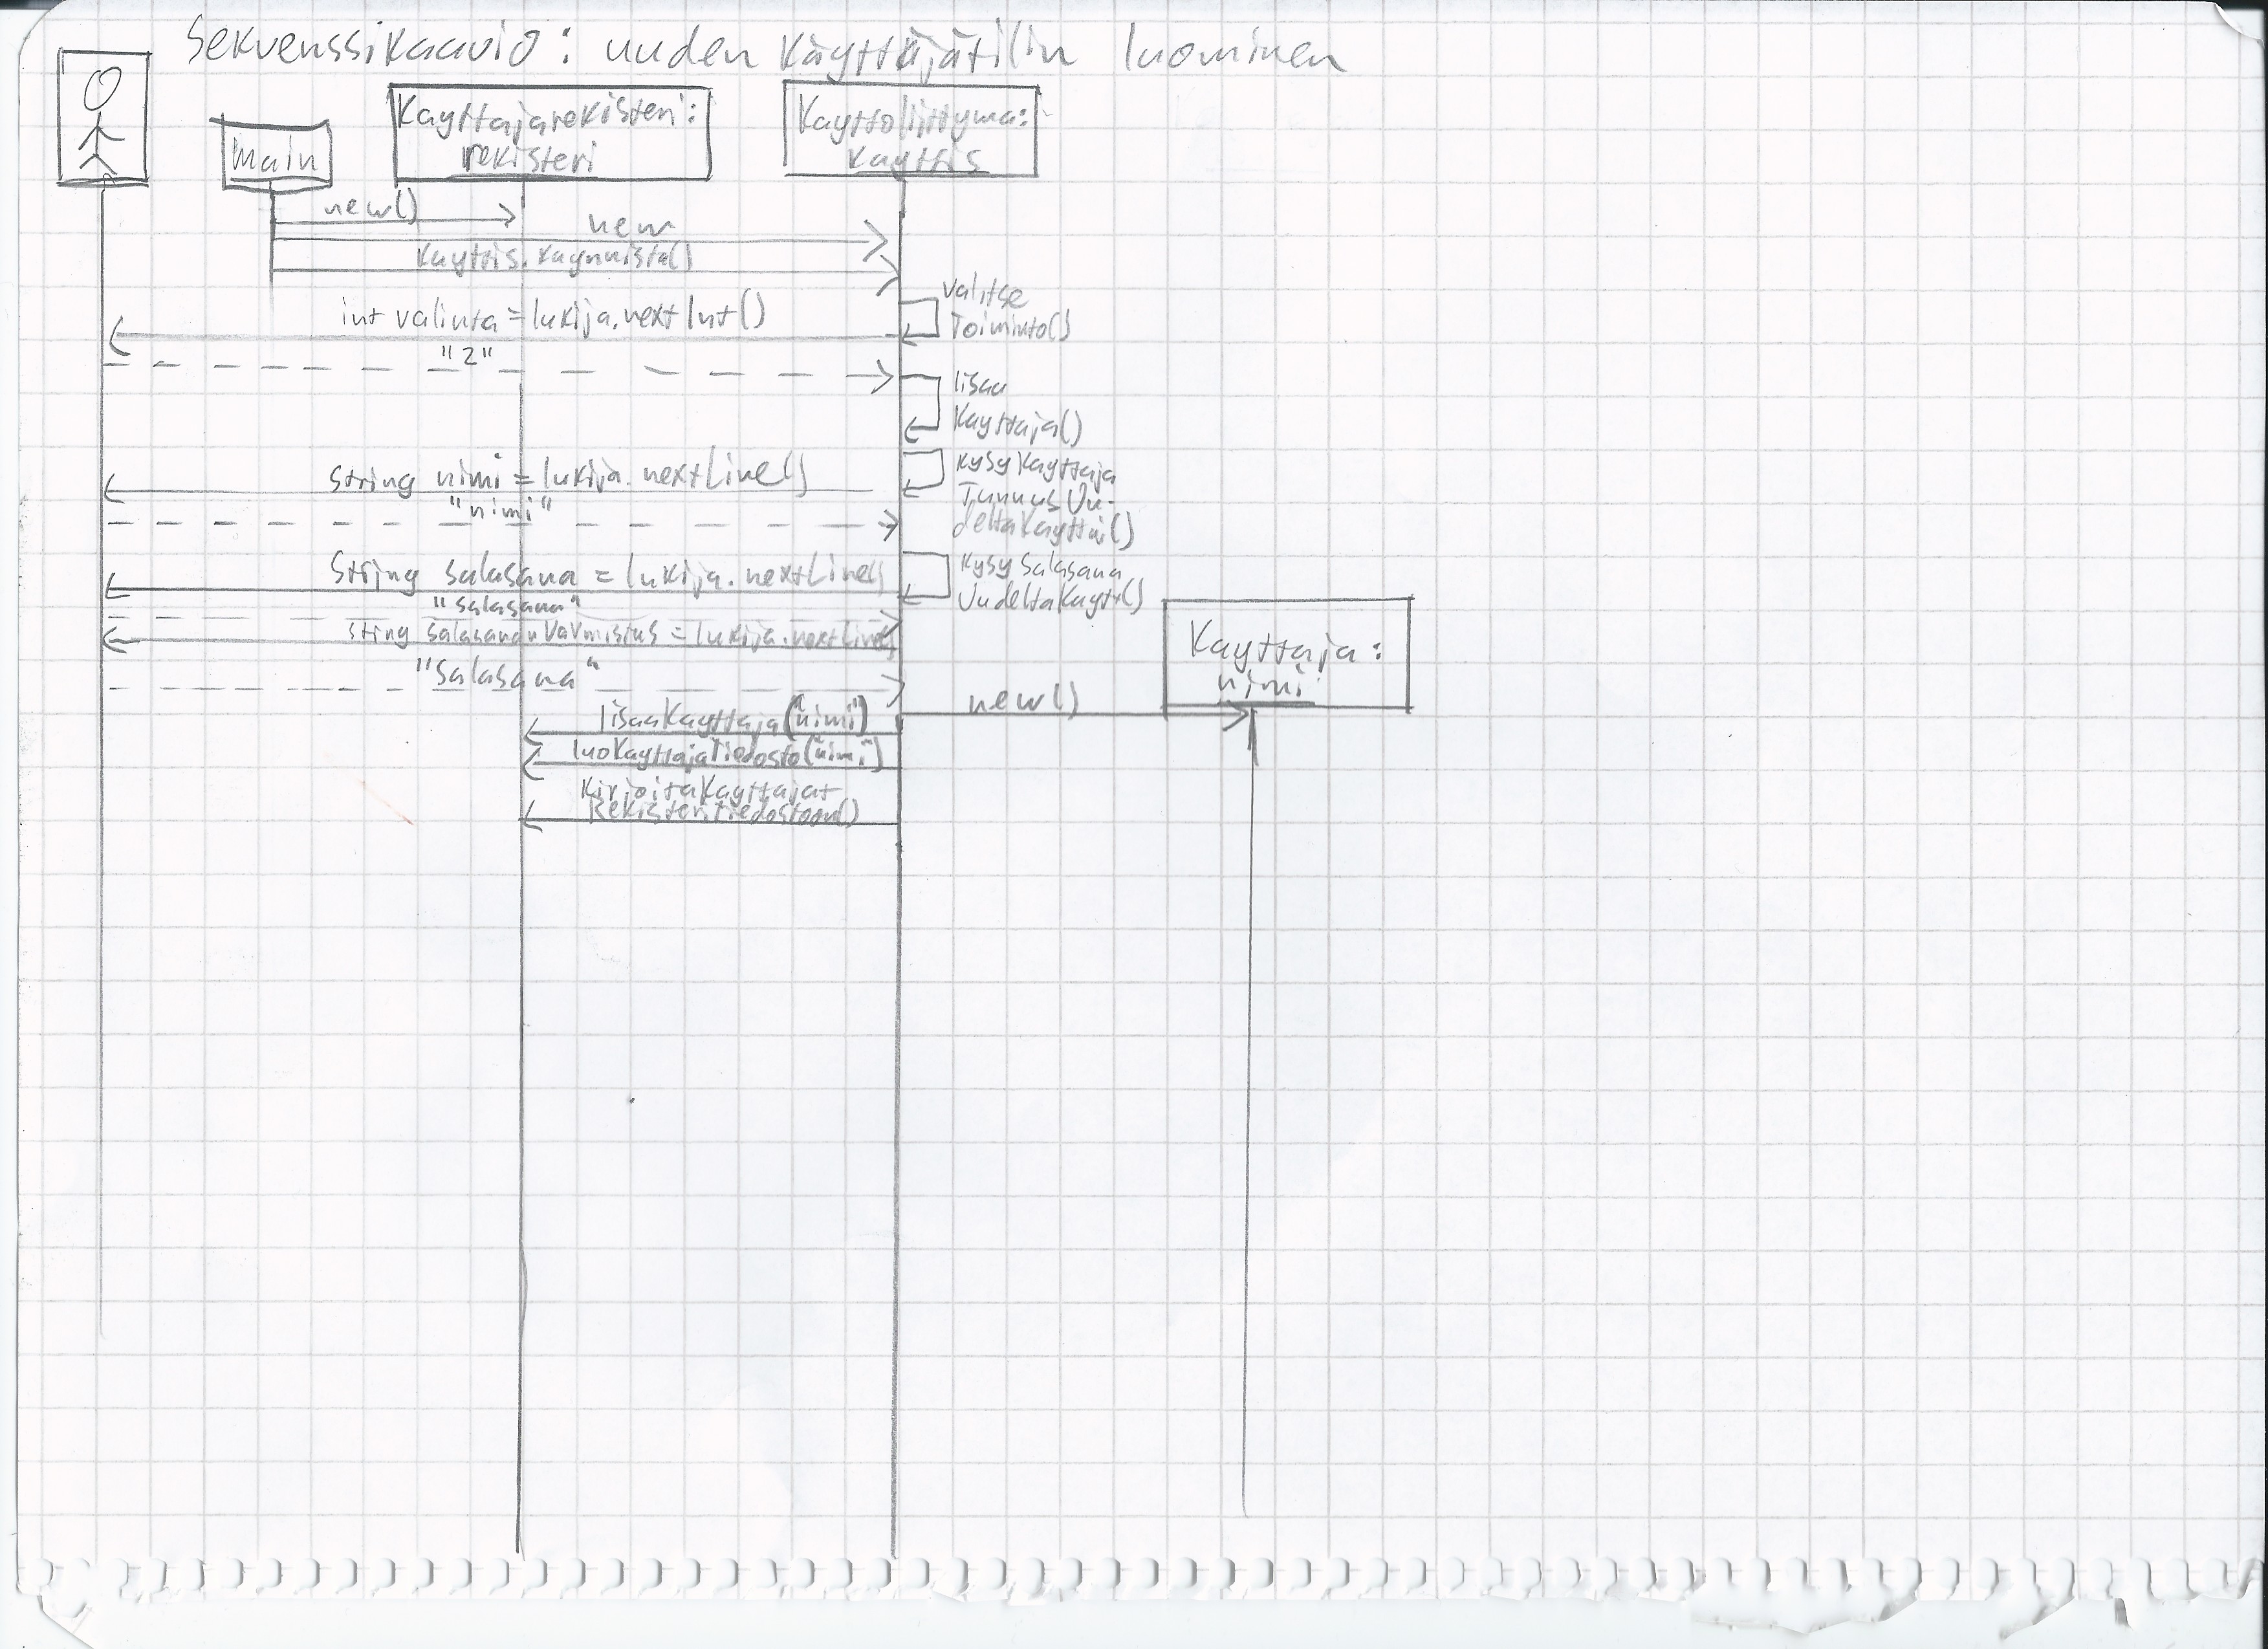 Sekvenssikaavio: uuden käyttäjätilin luominen
main
Kayttajarekisteri:
rekisteri
Kayttoliittyma:
kayttis
new()
new
kayttis.kaynnista()
valitse
Toiminto()
int valinta = lukija.nextInt()
"2"
lisaa
Kayttaja()
String nimi = lukija.nextLine()
"nimi"
kysyKayttaja
TunnusUu-
deltaKayttaj()
String salasana = lukija.nextLine()
"salasana"
kysySalasana
UudeltaKayt()
String salasananVarmistus = lukija.nextLine()
"salasana"
Kayttaja:
nimi
new()
lisaaKayttaja("nimi")
luoKayttajaTiedosto("nimi")
KirjoitaKayttajat
Rekisteritiedostoon()